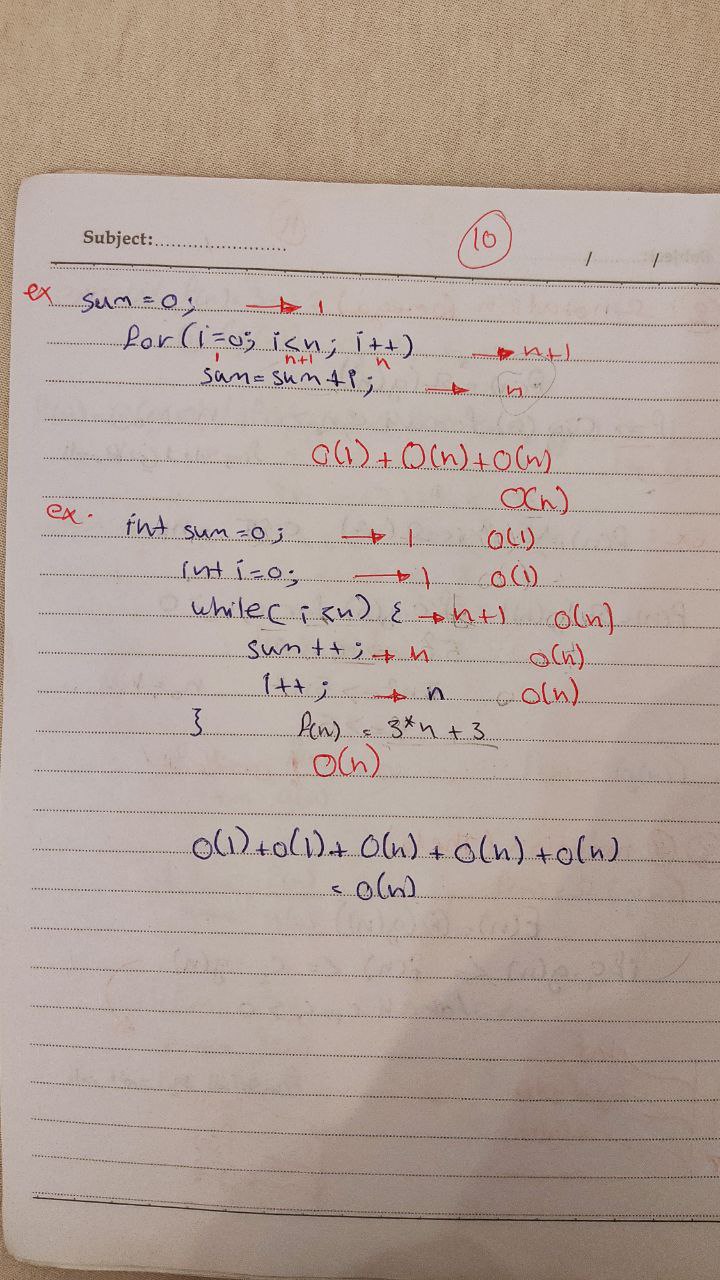 Subject:........................ 10 / /
ex sum = 0; → 1
for(i=0; i<n; i++) → n+1
1 n+1 n
sum = sum + i; → n
O(1) + O(n) + O(n)
O(n)
ex. int sum = 0; → 1 O(1)
int i = 0; → 1 O(1)
while( i < n) { → n+1 O(n)
sum ++; → n O(n)
i++; → n O(n)
} f(n) = 3*n + 3
O(n)
O(1) + O(1) + O(n) + O(n) + O(n)
= O(n)